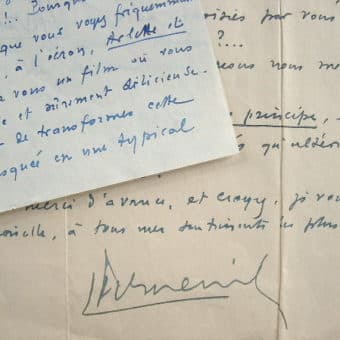 !.. Pourquoi
que vous voyez fréquemment
, à l'écran, Arlette et
vous un film où vous
e et sûrement délicieuse.
de transformer cette
oquée en une typical
par vous
?...
nous me
principe,
merci d'avance, et croyez, je vous
oiselle, à tous mes sentiments les plus